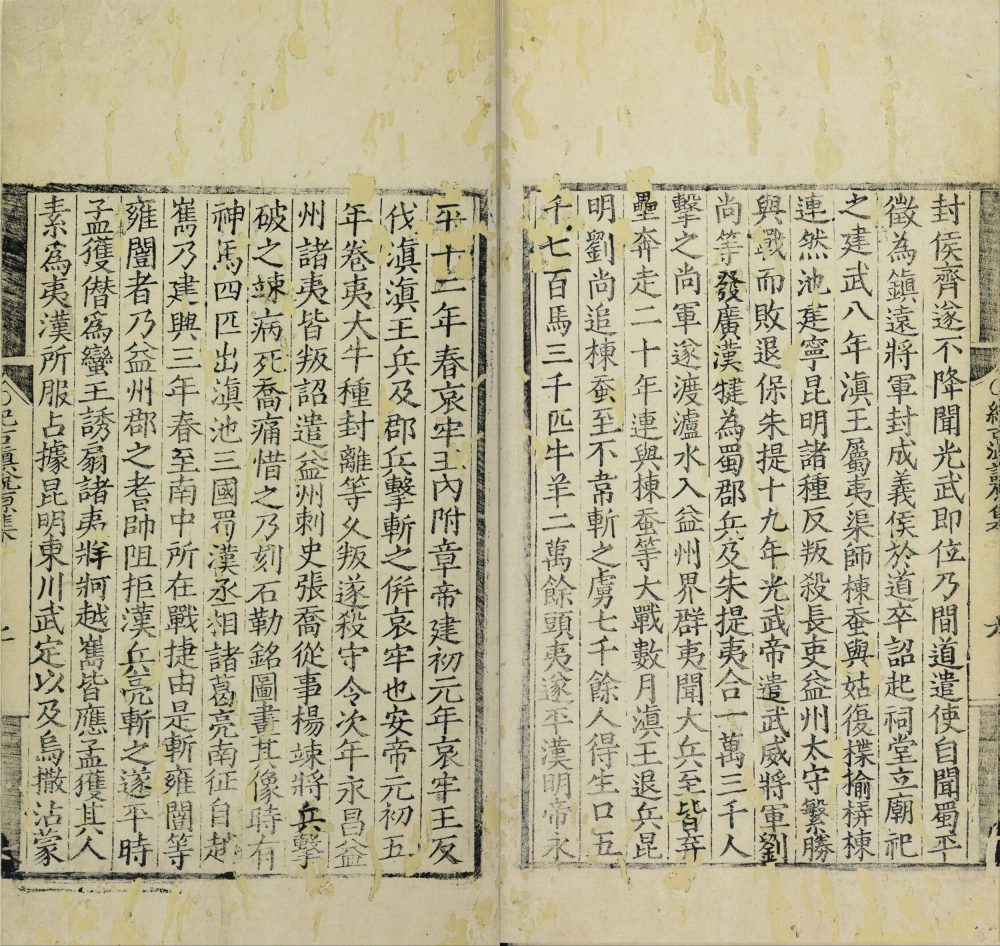 封侯齊遂不降聞光武即位乃間道遣使自聞蜀平
徵為鎮遠將軍封成義侯於道卒詔起祠堂立廟祀
之建武八年滇王屬夷渠師棟蚕與姑復楪揄梇棟
連然池建寧昆明諸種反叛殺長吏益州太守繁勝
與戰而敗退保朱提十九年光武帝遣武威將軍劉
尚等發廣漢犍為蜀郡兵及朱提夷合一萬三千人
擊之尚軍遂渡瀘水入益州界群夷聞大兵至皆弃
壘奔走二十年連與棟蚕等大戰數月滇王退兵昆
明劉尚追棟蚕至不韋斬之虜七千餘人得生口五
千七百馬三千匹牛羊二萬餘頭夷遂平漢明帝永
平十二年春哀牢王內附章帝建初元年哀牢王反
伐滇滇王兵及郡兵擊斬之併哀牢也安帝元初五
年卷夷大牛種封離等久叛遂殺守令次年永昌益
州諸夷皆叛詔遣益州刺史張喬從事楊竦將兵擊
破之竦病死喬痛惜之乃刻石勒銘圖畫其像時有
神馬四匹出滇池三國蜀漢丞相諸葛亮南征自越
嶲乃建興三年春至南中所在戰捷由是斬雍闓等
雍闓者乃益州郡之耆帥阻拒漢兵亮斬之遂平時
孟獲僣為蠻王誘扇諸夷牂牁越嶲皆應孟獲其人
素為夷漢所服占據昆明東川武定以及烏撒沾蒙